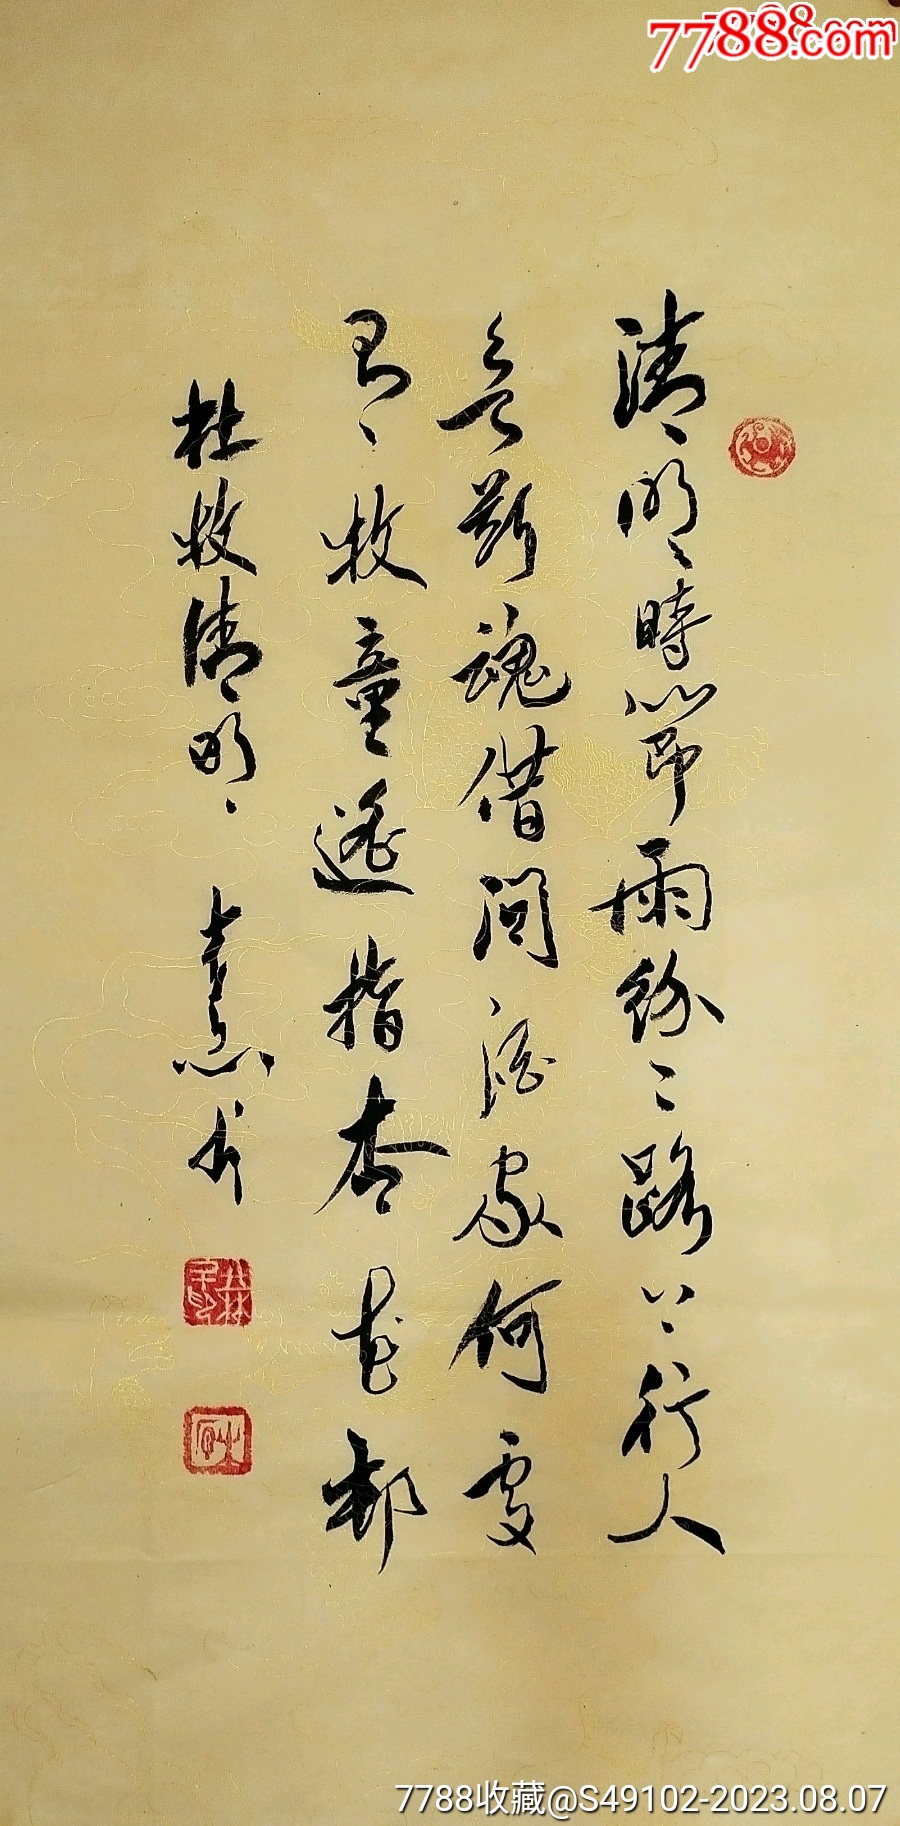 7788.com
7788.com
清明時節雨紛々路上行人
欲斷魂借問酒家何處
有牧童遥指杏花邨
杜牧清明
7788收藏@S49102-2023.08.07